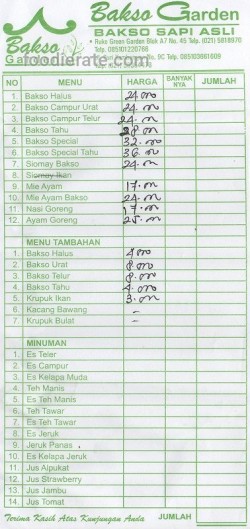 Bakso Garden
BAKSO SAPI ASLI
• Ruko Green Garden Blok A7 No. 45 Telp. (021) 5818970
Telp. 085101220766
Bakso
Garden
foodierate.com
NO MENU HARGA BANYAK NYA JUMLAH
1. Bakso Halus 24.000
2. Bakso Campur Urat 24.000
3. Bakso Campur Telur 24.000
4. Bakso Tahu 28.000
5. Bakso Special 32.000
6. Bakso Special Tahu 36.000
7. Siomay Bakso 24.000
8. Siomay Ikan
9. Mie Ayam 17.000
10. Mie Ayam Bakso 24.000
11. Nasi Goreng 17.000
12. Ayam Goreng 25.000
MENU TAMBAHAN
1. Bakso Halus 4000
2. Bakso Urat 8.000
3. Bakso Telur 8.000
4. Bakso Tahu 4.000
5. Krupuk Ikan 3.000
6. Kacang Bawang -
7. Krupuk Bulat -
MINUMAN
1. Es Teler
2. Es Campur
3. Es Kelapa Muda
4. Teh Manis
5. Es Teh Manis
6. Teh Tawar
7. Es Teh Tawar
8. Es Jeruk
9. Jeruk Panas
10. Es Kelapa Jeruk
11. Jus Alpukat
12. Jus Strawberry
13. Jus Jambu
14. Jus Tomat
Terima Kasih Atas Kunjungan Anda JUMLAH